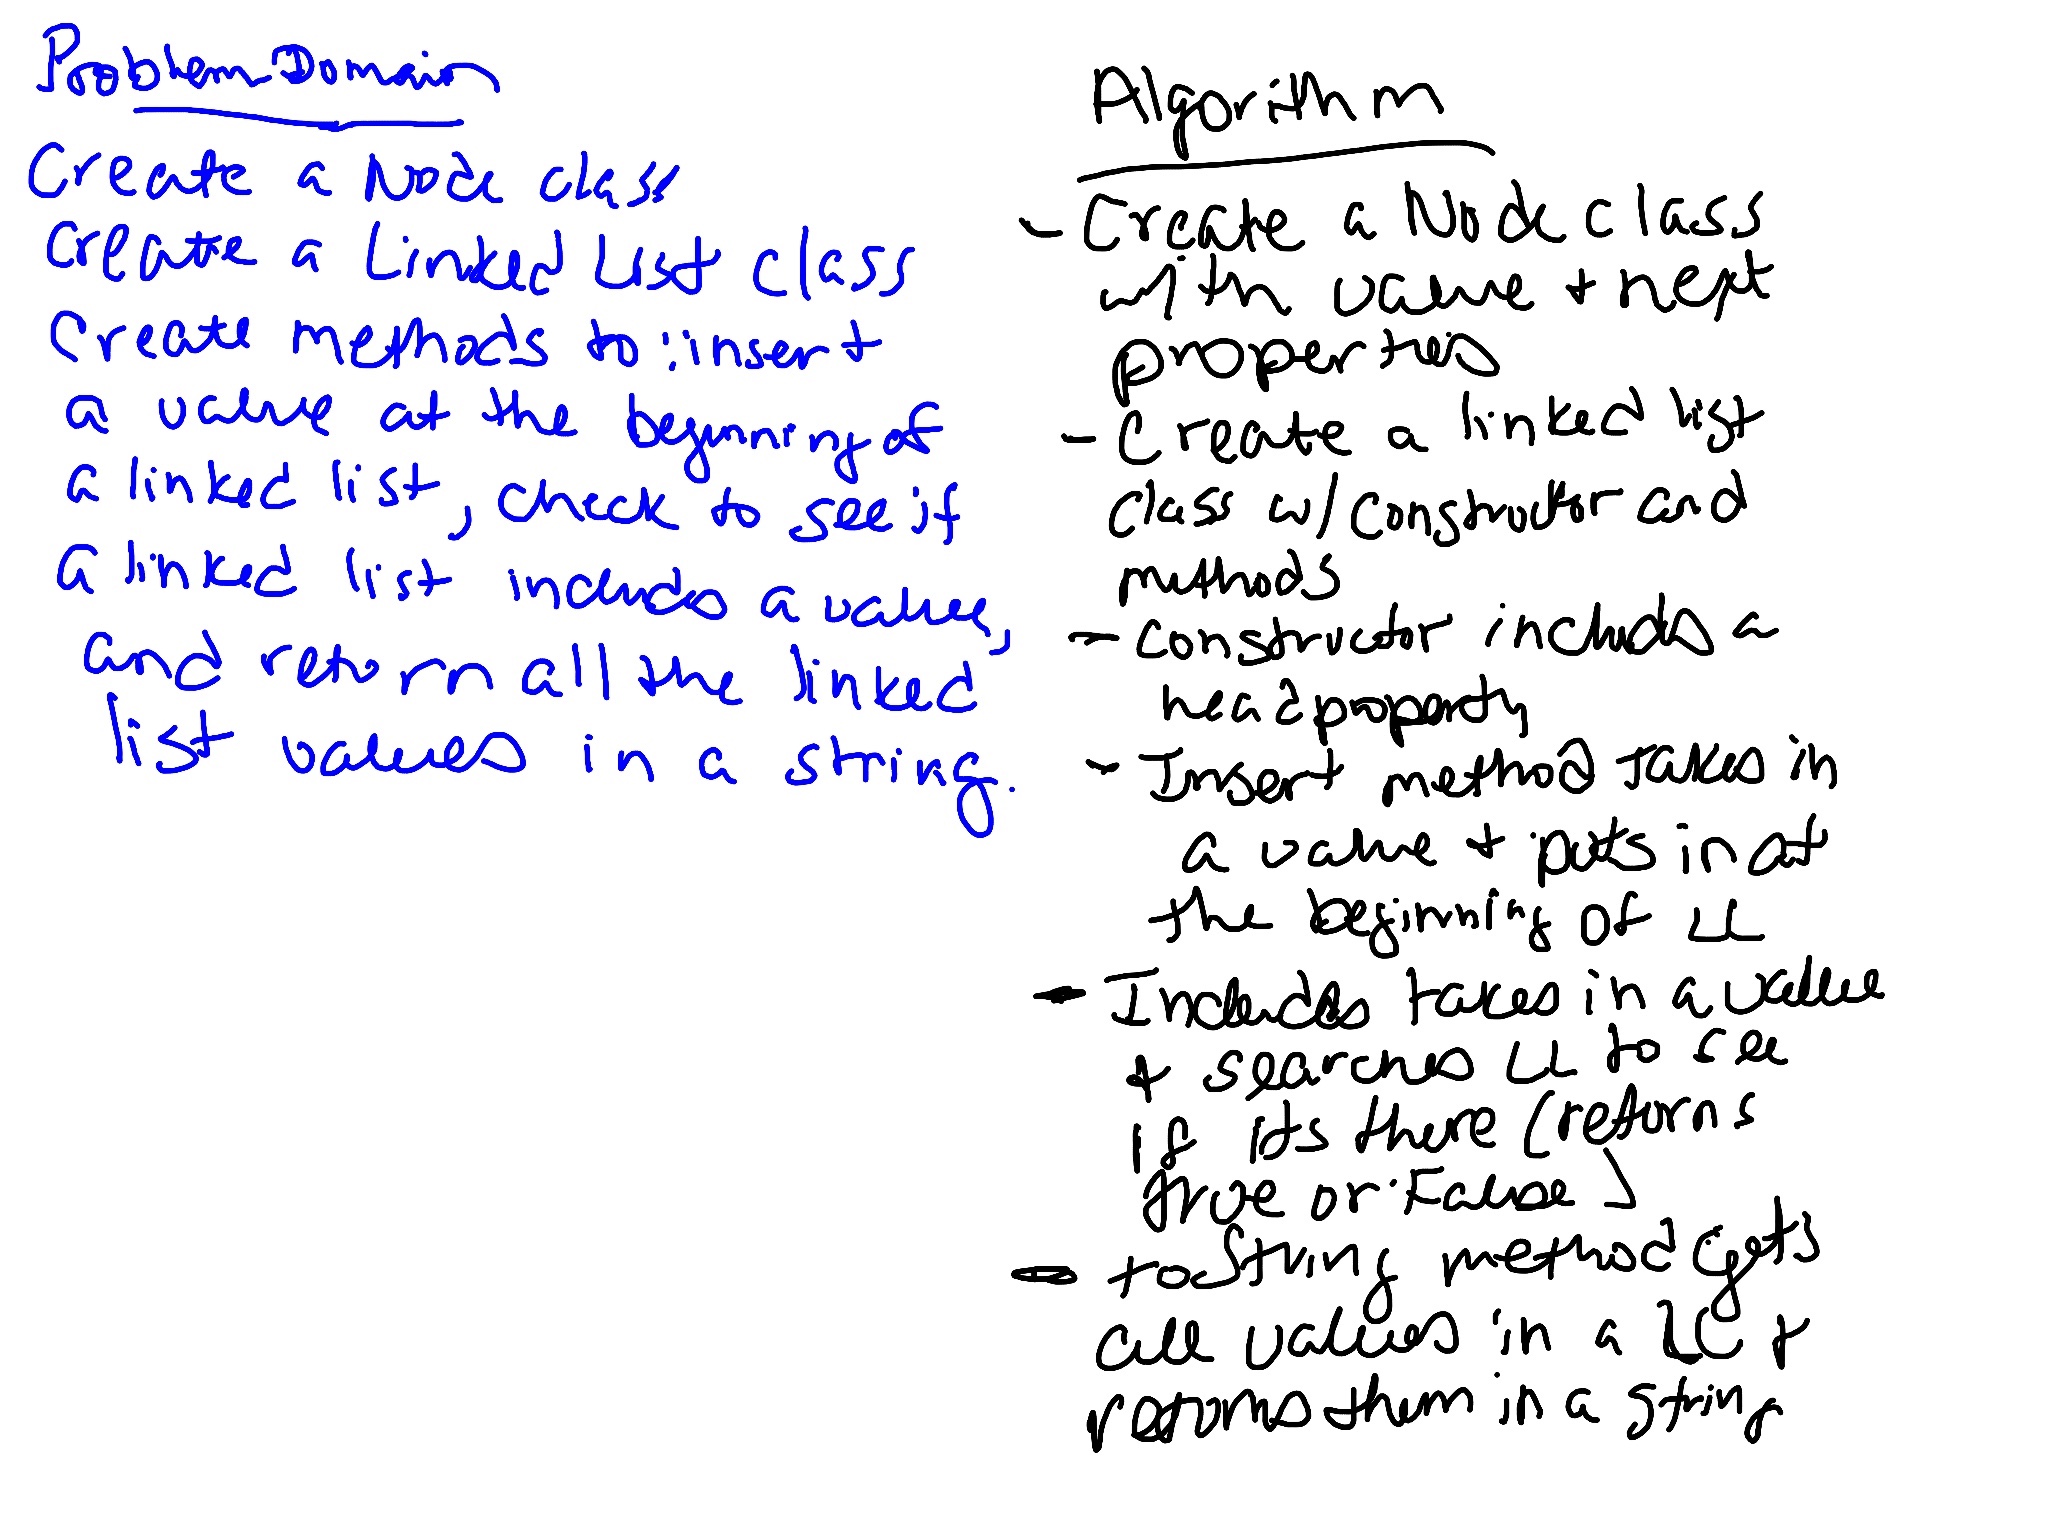 Problem Domain
Create a Node class
Create a Linked List class
Create methods to: insert
a value at the beginning of
a linked list, check to see if
a linked list includes a value,
and return all the linked
list values in a string.
Algorithm
- Create a Node class
with value + next
properties
- Create a linked list
class w/ constructor and
methods
- constructor includes a
head property
- Insert method takes in
a value + puts in at
the beginning of LL
- Includes takes in a value
+ searches LL to see
if its there (returns
true or False)
- toString method gets
all values in a LL +
returns them in a string